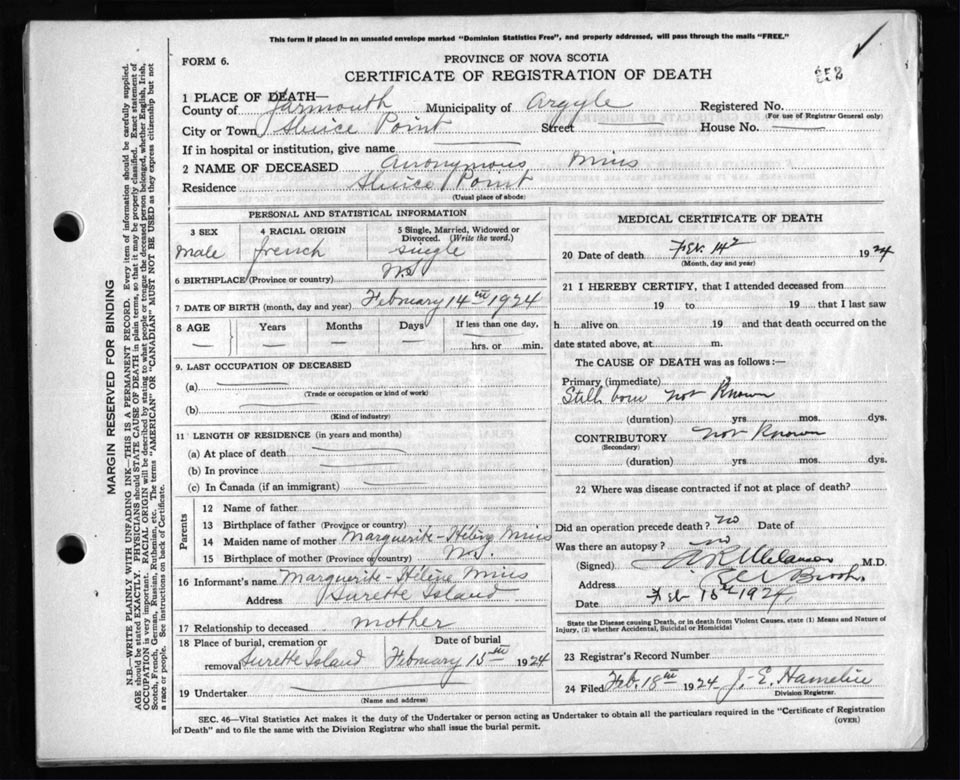 This form if placed in an unsealed envelope marked "Dominion Statistics Free", and properly addressed, will pass through the mails "FREE."
FORM 6.
PROVINCE OF NOVA SCOTIA
CERTIFICATE OF REGISTRATION OF DEATH
1 PLACE OF DEATH—
County of Yarmouth Municipality of Argyle Registered No.
(For use of Registrar General only)
City or Town Sluice Point Street House No.
If in hospital or institution, give name
2 NAME OF DECEASED Anonymous Mius
Residence Sluice Point
(Usual place of abode)
PERSONAL AND STATISTICAL INFORMATION
3 SEX 4 RACIAL ORIGIN 5 Single, Married, Widowed or Divorced. (Write the word.)
Male french single
6 BIRTHPLACE (Province or country) N.S.
7 DATE OF BIRTH (month, day and year) February 14th 1924
8 AGE Years Months Days If less than one day,
— — — — hrs. or min.
9. LAST OCCUPATION OF DECEASED
(a)
(Trade or occupation or kind of work)
(b)
(Kind of industry)
11 LENGTH OF RESIDENCE (in years and months)
(a) At place of death
(b) In province
(c) In Canada (if an immigrant)
Parents
12 Name of father
13 Birthplace of father (Province or country)
14 Maiden name of mother Marguerite-Hélène Mius
15 Birthplace of mother (Province or country) N.S.
16 Informant's name Marguerite-Hélène Mius
Address Surette Island
17 Relationship to deceased mother
18 Place of burial, cremation or removal Surette Island Date of burial February 15th 1924
19 Undertaker
(Name and address)
MEDICAL CERTIFICATE OF DEATH
20 Date of death Feb. 14 1924
(Month, day and year)
21 I HEREBY CERTIFY, that I attended deceased from
19 to 19 that I last saw
h alive on 19 and that death occurred on the
date stated above, at m.
The CAUSE OF DEATH was as follows:—
Primary (immediate)
Still born not Known
(duration) yrs. mos. dys.
CONTRIBUTORY not Known
(Secondary)
(duration) yrs. mos. dys.
22 Where was disease contracted if not at place of death?
Did an operation precede death? no Date of
Was there an autopsy? no
(Signed) M.D.
Address Brook
Date Feb 18th 1924
State the Disease causing Death, or in death from Violent Causes, state (1) Means and Nature of Injury, (2) whether Accidental, Suicidal or Homicidal
23 Registrar's Record Number
24 Filed Feb. 18th 1924 J.-E. Hamelin
Division Registrar.
SEC. 46—Vital Statistics Act makes it the duty of the Undertaker or person acting as Undertaker to obtain all the particulars required in the "Certificate of Registration
of Death" and to file the same with the Division Registrar who shall issue the burial permit.
(OVER)
MARGIN RESERVED FOR BINDING
N.B.—WRITE PLAINLY WITH UNFADING INK—THIS IS A PERMANENT RECORD. Every item of information should be carefully supplied.
AGE should be stated EXACTLY. PHYSICIANS should STATE CAUSE OF DEATH in plain terms, so that it may be properly classified. Exact statement of
OCCUPATION is very important. RACIAL ORIGIN will be described by stating to what people or tongue the deceased person belonged, whether English, Irish,
Scotch, French, German, Russian, Ruthenian, etc. The terms "AMERICAN" OR "CANADIAN" MUST NOT BE USED as they express citizenship but not
a race or people. See instructions on back of Certificate.